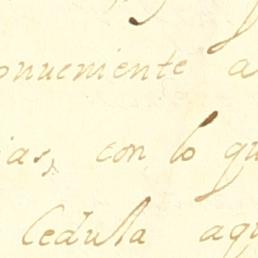 onueniente a
ias, con lo qu
Cedula aq